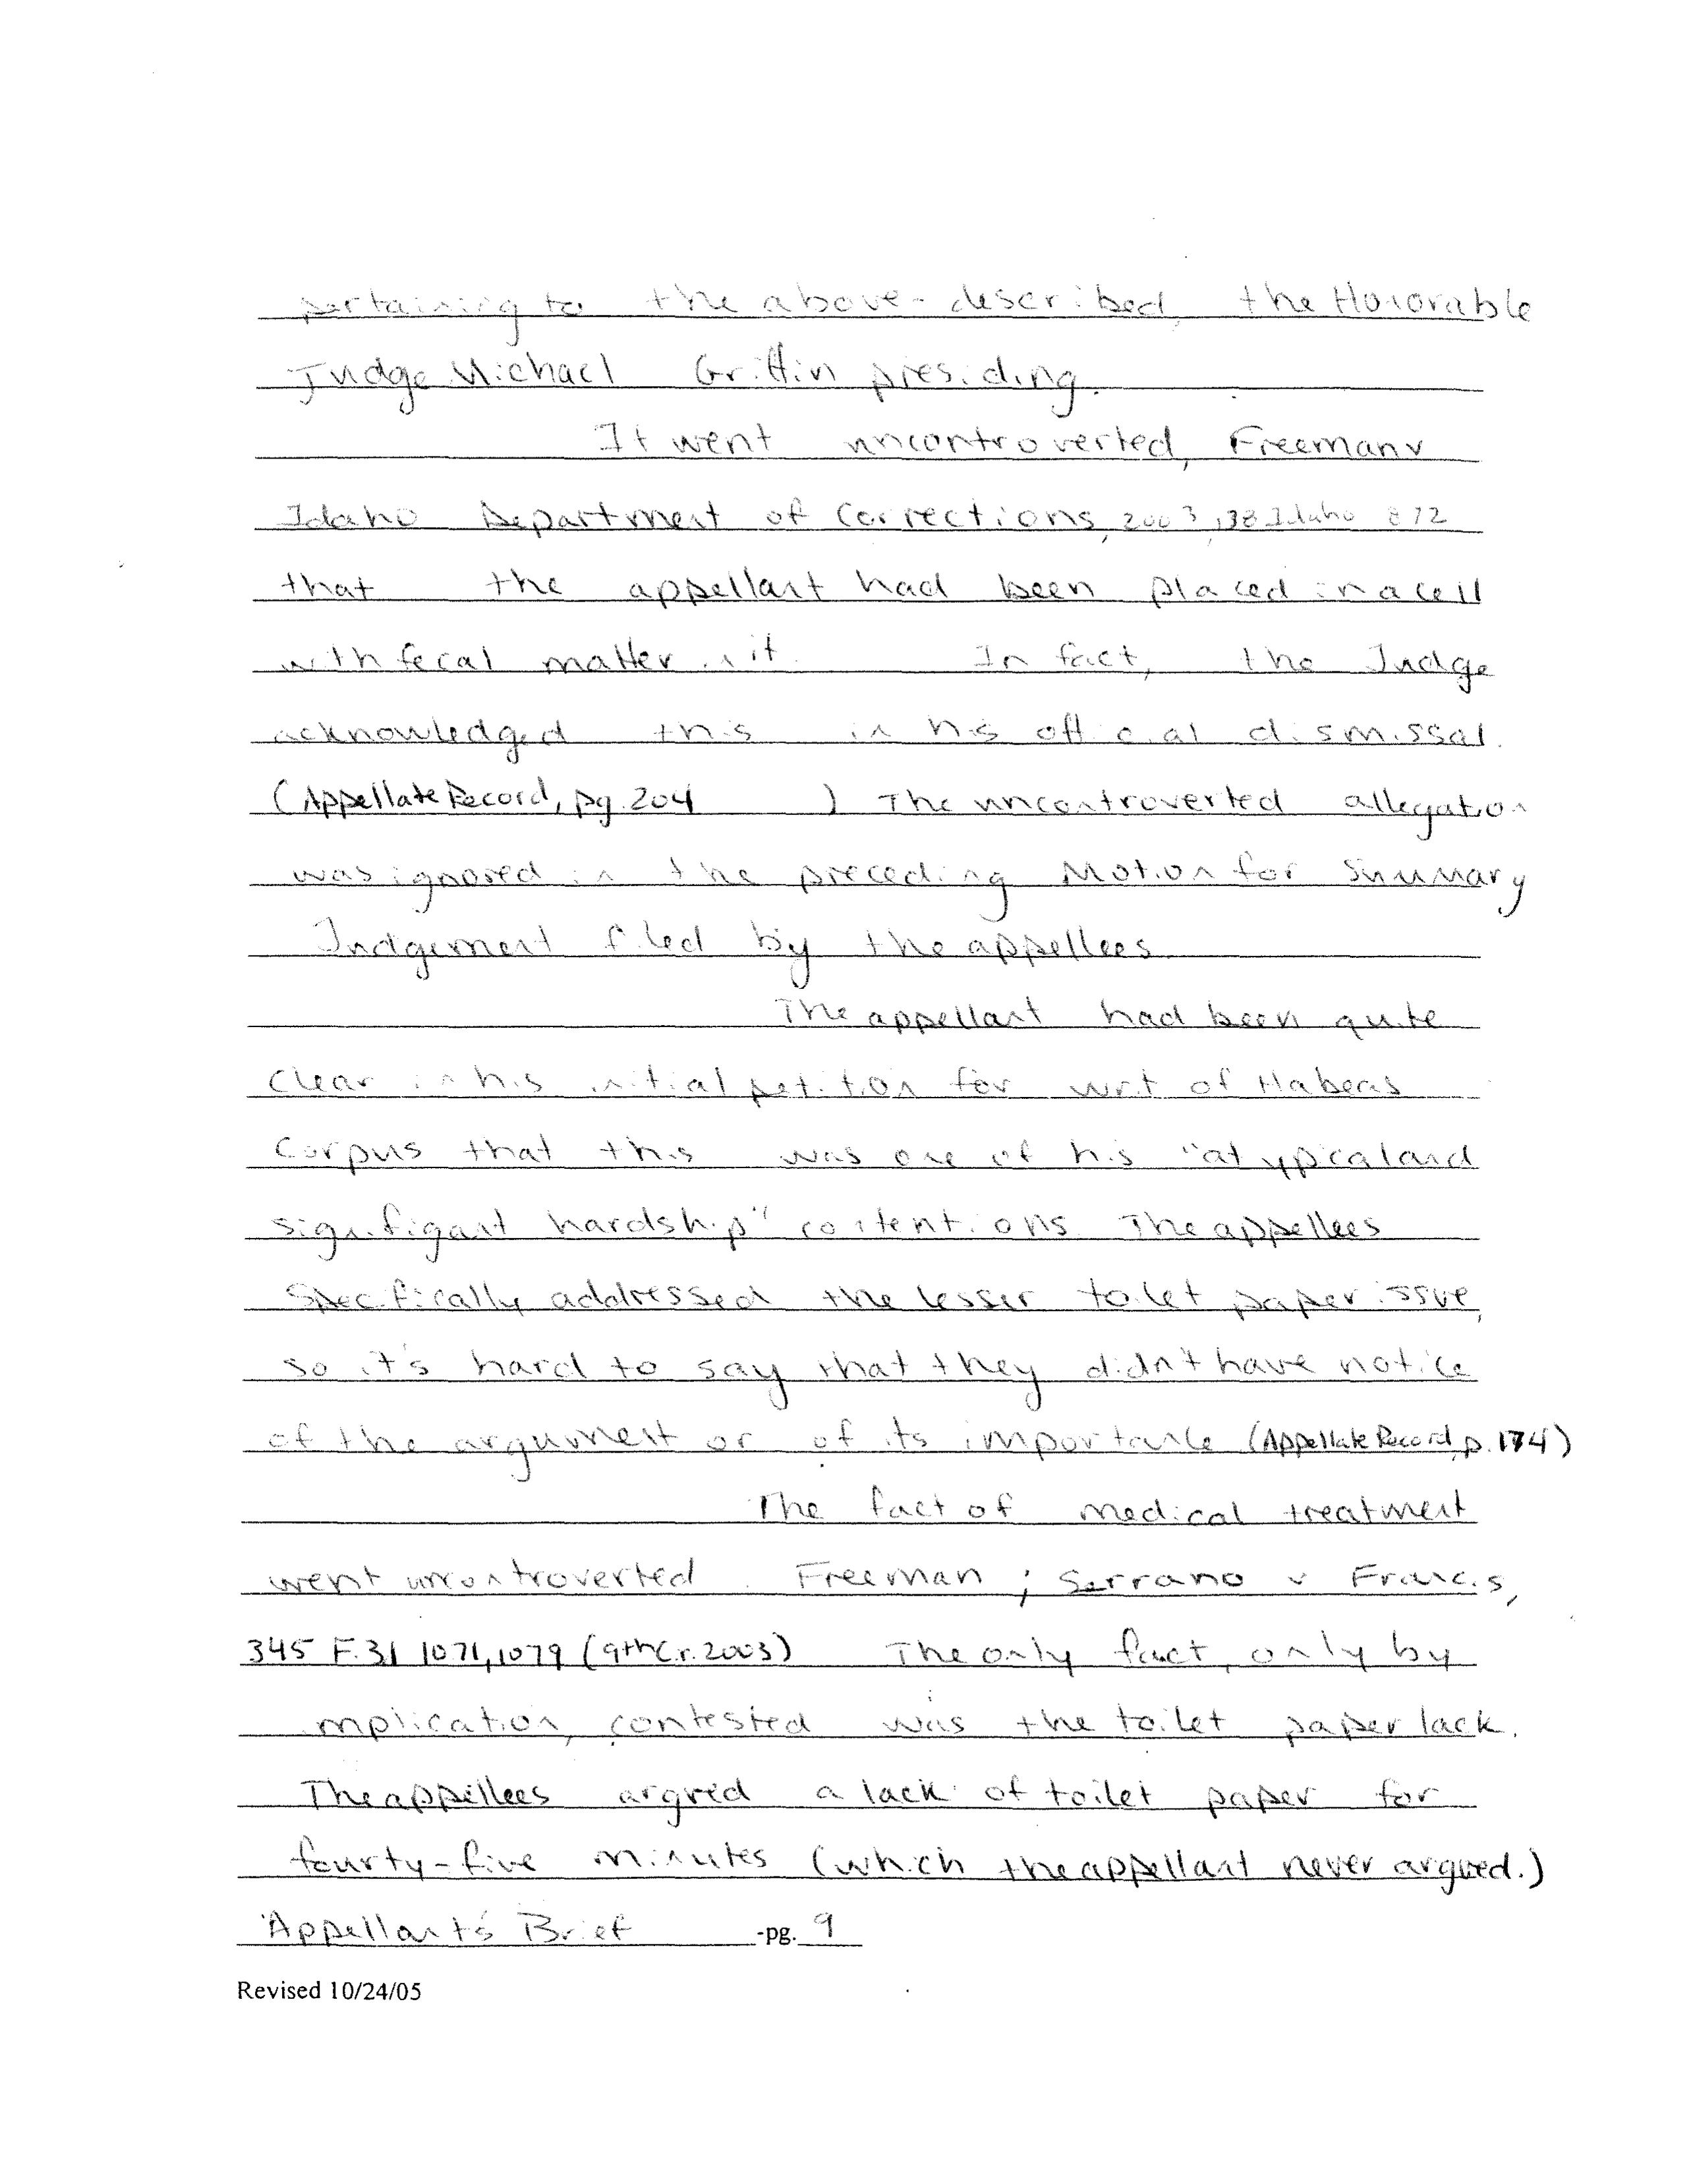 pertaining to the above-described, the Honorable
Judge Michael Griffin presiding.
It went uncontroverted, Freeman v
Idaho Department of Corrections, 2003, 138 Idaho 872
that the appellant had been placed in a cell
with fecal matter in it. In fact, the Judge
acknowledged this in his official dismissal.
(Appellate Record, pg. 204 ) The uncontroverted allegation
was ignored in the preceding Motion for Summary
Judgement filed by the appellees
The appellant had been quite
clear in his initial petition for writ of Habeas
Corpus that this was one of his "atypical and
signifigant hardship" contentions. The appellees
specifically addressed the lesser toilet paper issue,
so it's hard to say that they didn't have notice
of the argument or of its importance (Appellate Record, p. 174)
The fact of medical treatment
went uncontroverted. Freeman ; Serrano v Francis,
345 F.3d 1071, 1079 (9th Cir. 2003) The only fact, only by
implication, contested was the toilet paper lack.
The appellees argued a lack of toilet paper for
fourty-five minutes (which the appellant never argued.)
Appellant's Brief -pg. 9
Revised 10/24/05